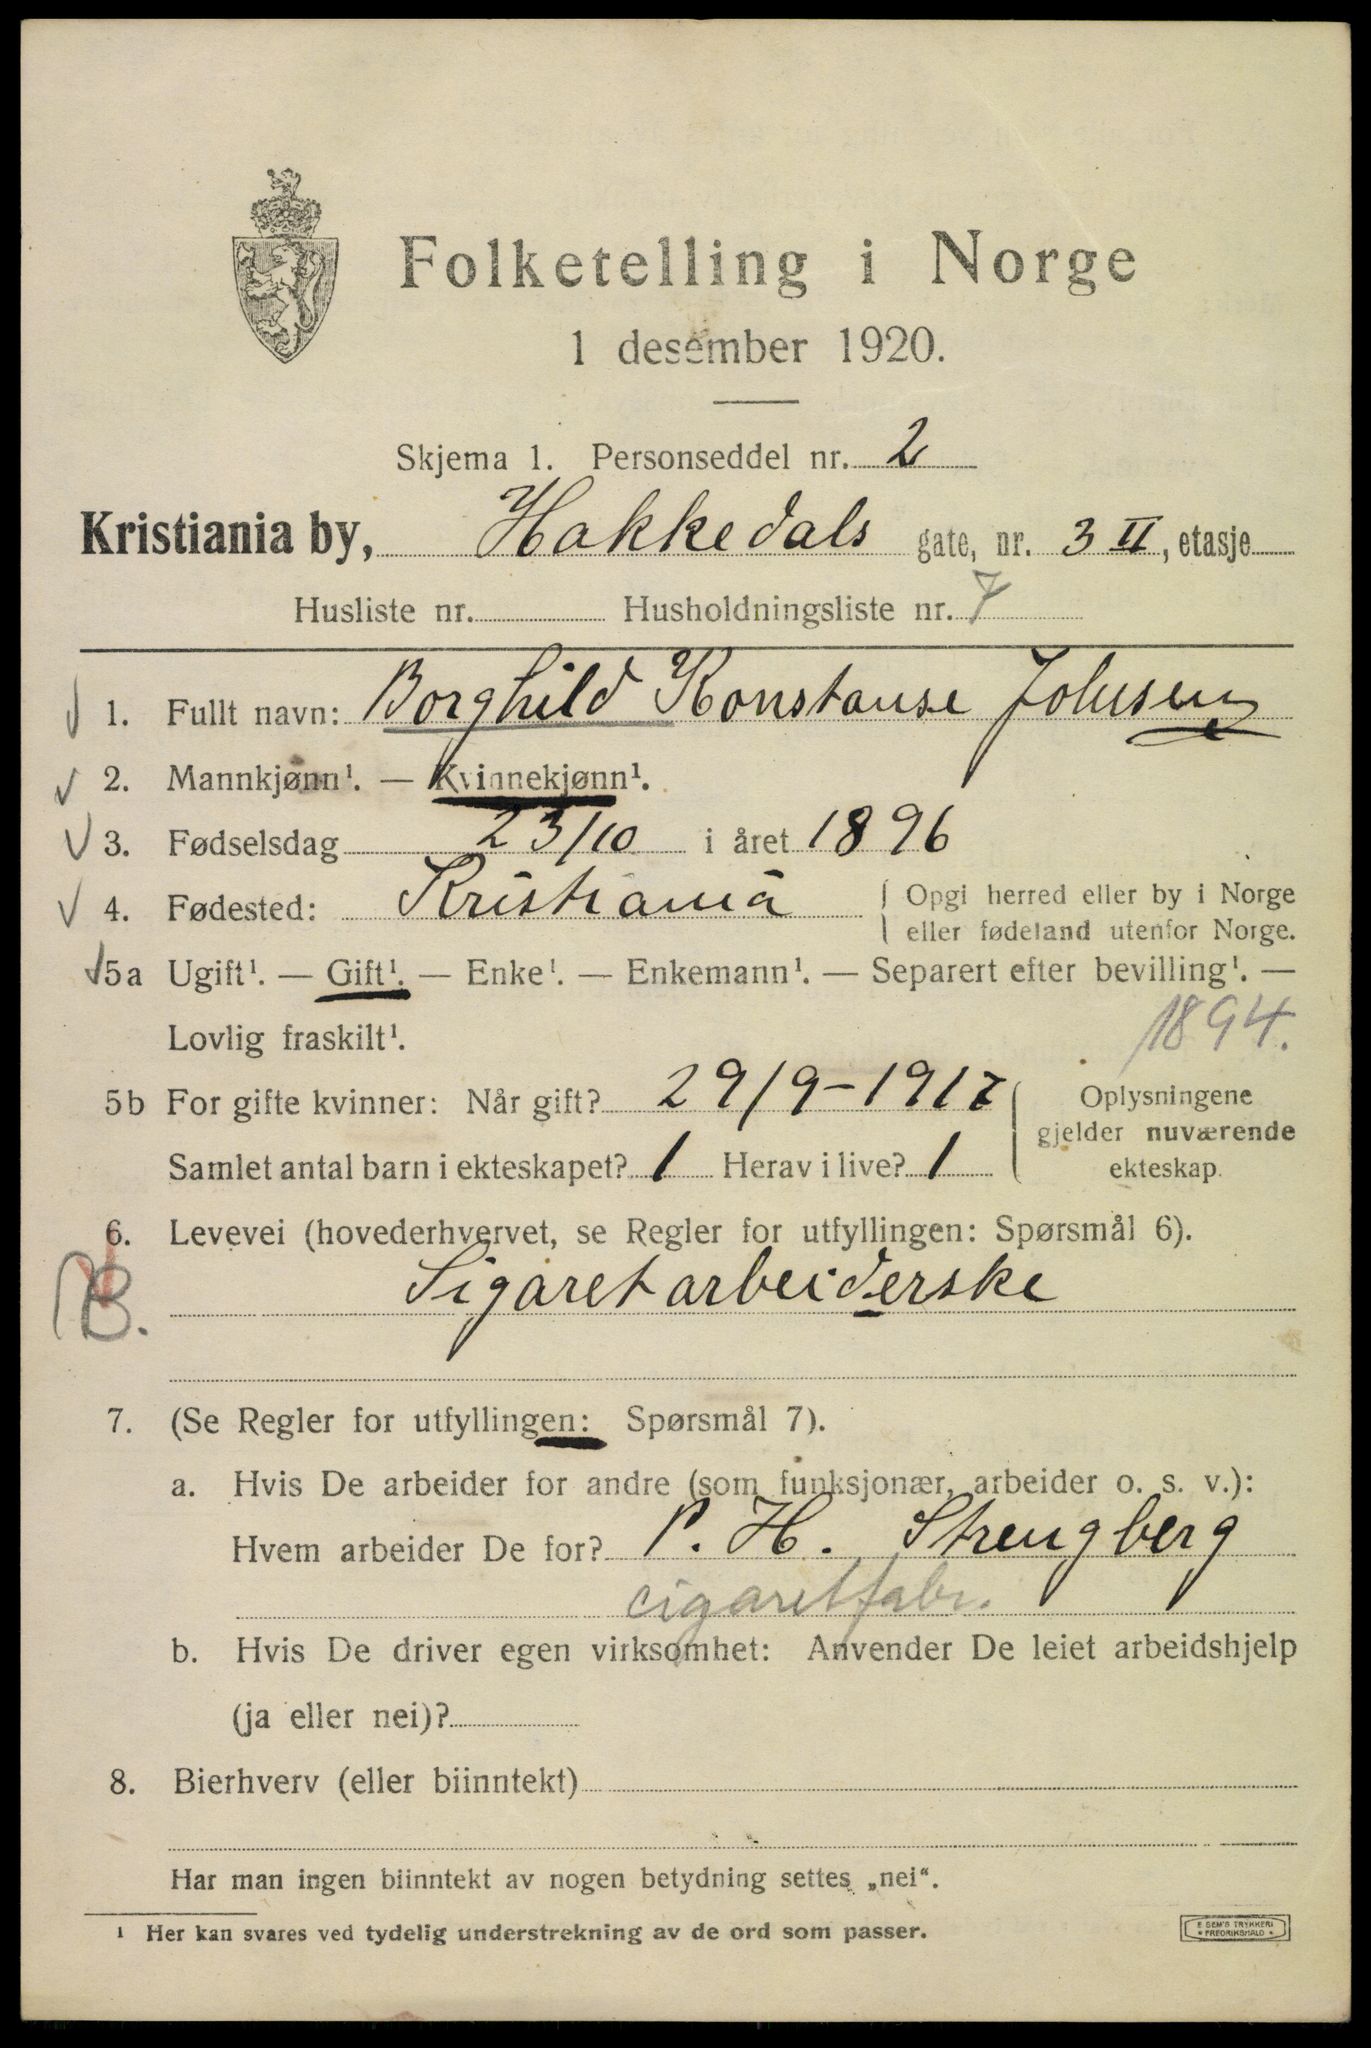 Folketelling i Norge
1 desember 1920.
Skjema 1. Personseddel nr. 2
Kristiania by, Hakkedals gate, nr. 3 II, etasje
Husliste nr. Husholdningsliste nr. 7
1. Fullt navn: Borghild Konstanse Johnsen
2. Mannkjønn¹. — Kvinnekjønn¹.
3. Fødselsdag 23/10 i året 1896
4. Fødested: Kristiania
Opgi herred eller by i Norge
eller fødeland utenfor Norge.
5a Ugift¹. — Gift¹. — Enke¹. — Enkemann¹. — Separert efter bevilling¹. —
Lovlig fraskilt¹.
1894.
5b For gifte kvinner: Når gift? 29/9-1917
Samlet antal barn i ekteskapet? 1 Herav i live? 1
Oplysningene
gjelder nuværende
ekteskap.
6. Levevei (hovederhvervet, se Regler for utfyllingen: Spørsmål 6).
Sigaretarbeiderske
7. (Se Regler for utfyllingen: Spørsmål 7).
a. Hvis De arbeider for andre (som funksjonær, arbeider o. s. v.):
Hvem arbeider De for? P. H. Strengberg
cigaretfabr.
b. Hvis De driver egen virksomhet: Anvender De leiet arbeidshjelp
(ja eller nei)?
8. Bierhverv (eller biinntekt)
Har man ingen biinntekt av nogen betydning settes „nei“.
¹ Her kan svares ved tydelig understrekning av de ord som passer.
E SEM'S TRYKKERI
* FREDRIKSHALD *